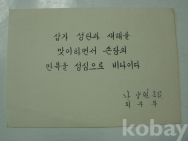 삼가 성탄과 새해를
맞이하면서 존장의
만복을 성심으로 비나이다
kobay